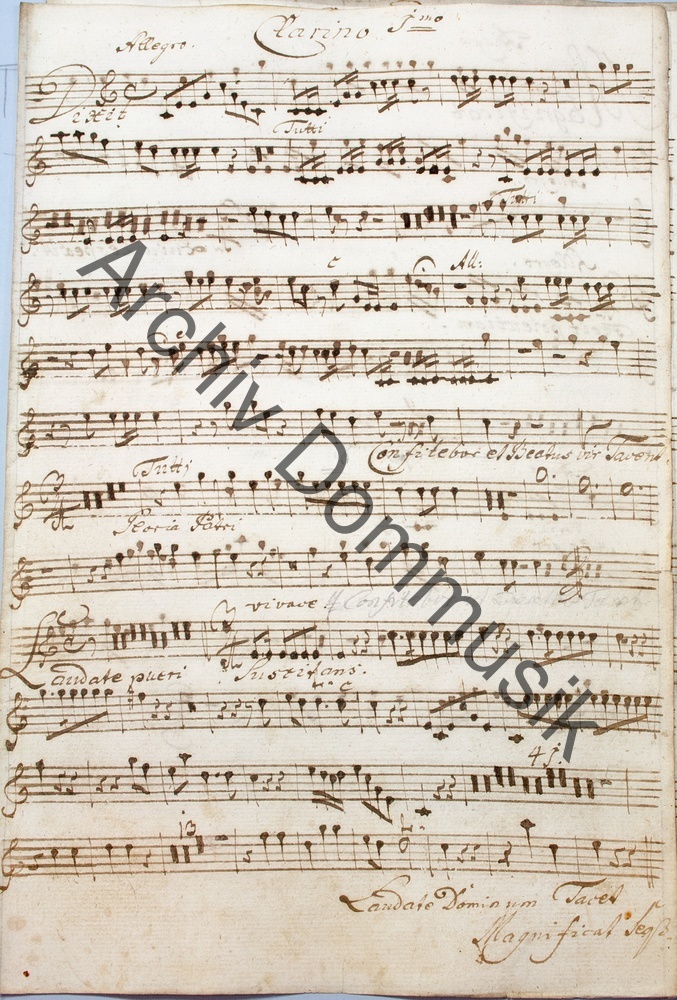 Clarino 1mo
Allegro.
Dixit
Tutti
Tutti
All:
Confitebor et Beatus vir Tacent
Tutti
Gloria Patri
vivace
Laudate pueri Suscitans.
41.
13
Laudate Dominum Tacet
Magnificat Seq:
Archiv Dommusik